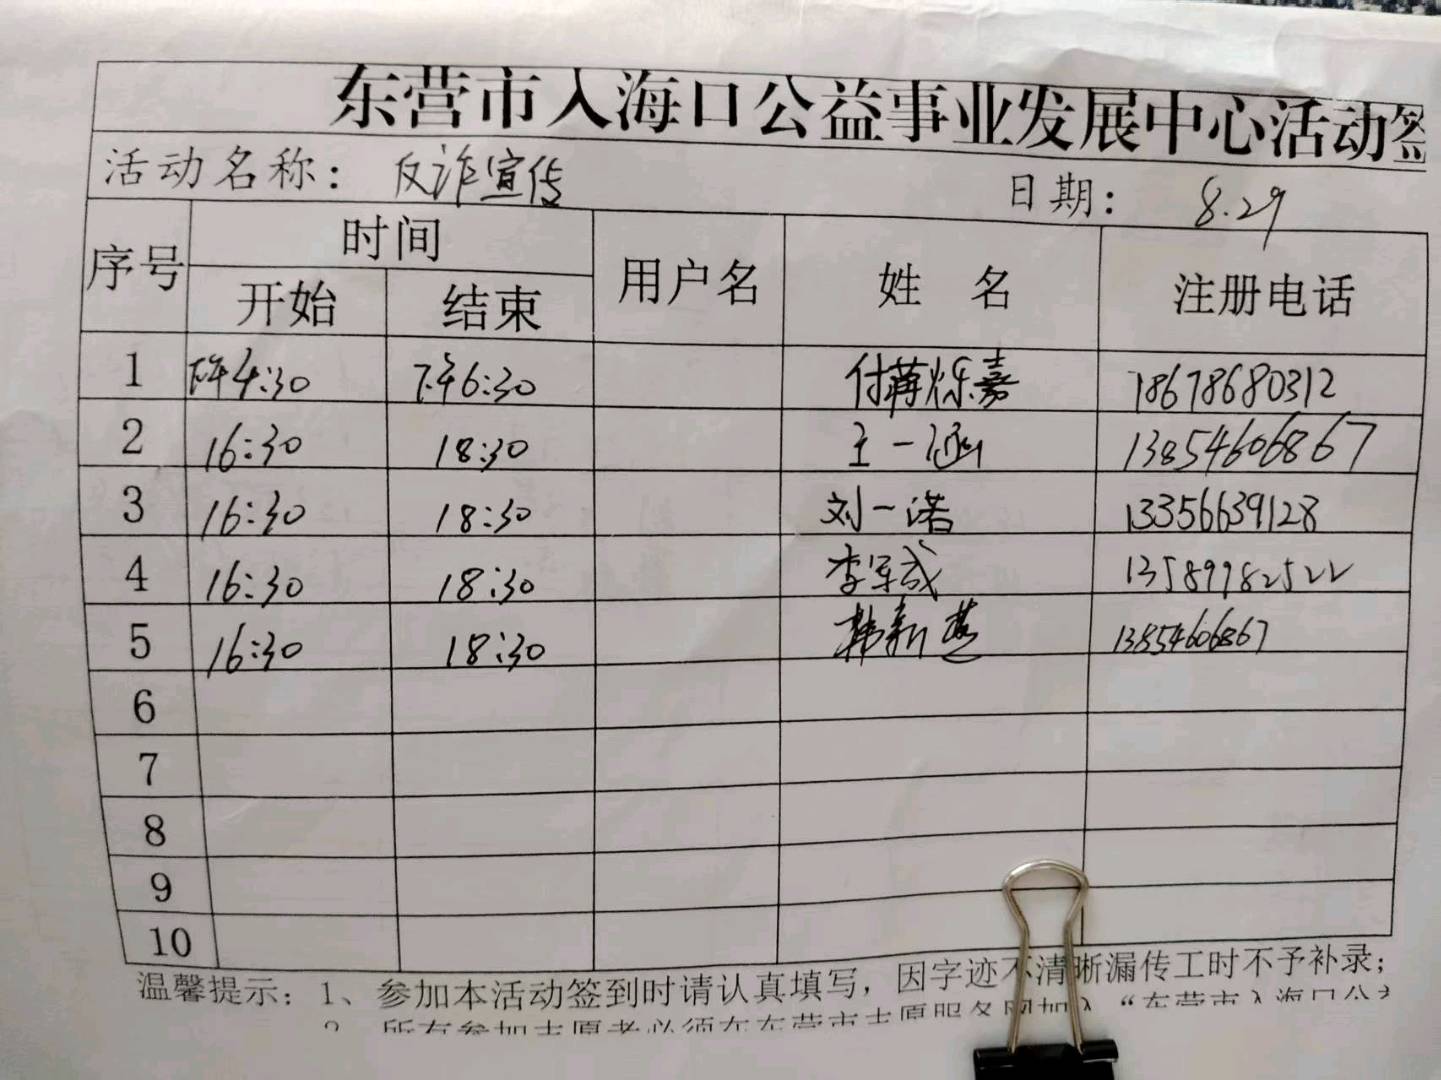 东营市入海口公益事业发展中心活动签
活动名称：反诈宣传 日期：8.29
序号 时间 用户名 姓 名 注册电话
开始 结束
1 下午4:30 下午6:30 付蒋烁嘉 18678680312
2 16:30 18:30 王一涵 13854606867
3 16:30 18:30 刘一诺 13356639128
4 16:30 18:30 李军成 13589982522
5 16:30 18:30 韩新 13854606867
6
7
8
9
10
温馨提示：1、参加本活动签到时请认真填写，因字迹不清晰漏传工时不予补录；
2、所有参加志愿者必须在东营市志愿服务网加入“东营市入海口公